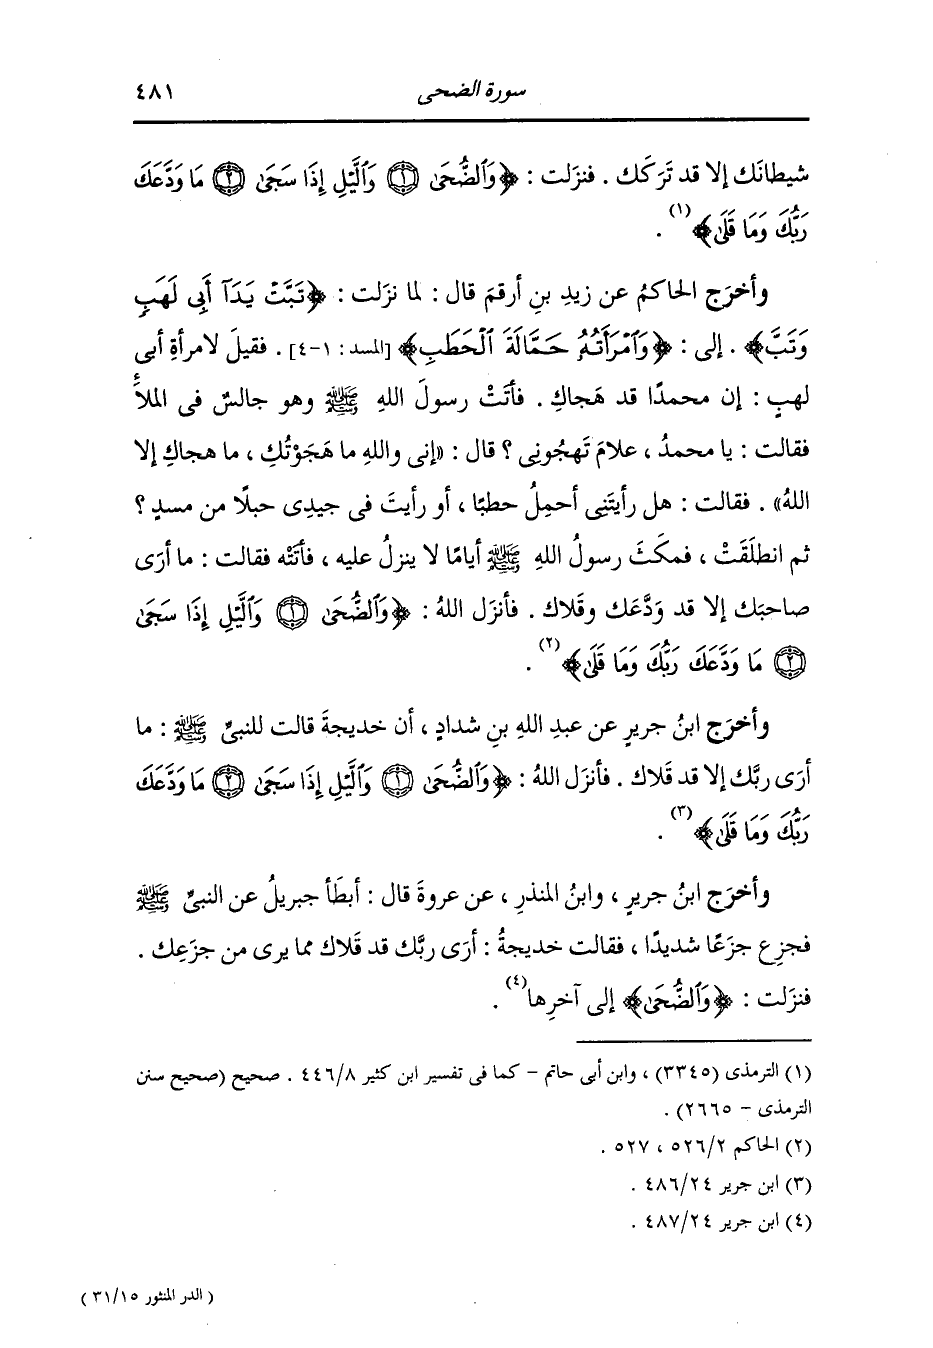 سورة الضحى ٤٨١
شيطانَك إلا قد تَرَكَك . فنزَلت : ﴿وَٱلضُّحَىٰ ۝١ وَٱلَّيْلِ إِذَا سَجَىٰ ۝٢ مَا وَدَّعَكَ
رَبُّكَ وَمَا قَلَىٰ﴾(١) .
وأخرَج الحاكمُ عن زيدِ بنِ أرقمَ قال : لما نزَلت : ﴿تَبَّتْ يَدَآ أَبِى لَهَبٍ
وَتَبَّ﴾ . إلى : ﴿وَٱمْرَأَتُهُۥ حَمَّالَةَ ٱلْحَطَبِ﴾ [المسد : ١-٤] . فقيلَ لامرأةِ أبى
لهبٍ : إن محمدًا قد هَجاكِ . فأتَتْ رسولَ اللهِ ﷺ وهو جالسٌ فى الملأَ
فقالت : يا محمدُ ، علامَ تَهجُونِى ؟ قال : «إنى واللهِ ما هَجَوْتُكِ ، ما هجاكِ إلا
اللهُ» . فقالت : هل رأيتَنِى أحمِلُ حطبًا ، أو رأيتَ فى جيدِى حبلًا من مسدٍ ؟
ثم انطلَقَتْ ، فمكَثَ رسولُ اللهِ ﷺ أيامًا لا ينزِلُ عليه ، فأتَتْه فقالت : ما أرَى
صاحبَك إلا قد وَدَّعَك وقلاك . فأنزَل اللهُ : ﴿وَٱلضُّحَىٰ ۝١ وَٱلَّيْلِ إِذَا سَجَىٰ
۝٢ مَا وَدَّعَكَ رَبُّكَ وَمَا قَلَىٰ﴾(٢) .
وأخرَج ابنُ جريرٍ عن عبدِ اللهِ بنِ شدادٍ ، أن خديجةَ قالت للنبىِّ ﷺ : ما
أرَى ربَّك إلا قد قلاك . فأنزَل اللهُ : ﴿وَٱلضُّحَىٰ ۝١ وَٱلَّيْلِ إِذَا سَجَىٰ ۝٢ مَا وَدَّعَكَ
رَبُّكَ وَمَا قَلَىٰ﴾(٣) .
وأخرَج ابنُ جريرٍ ، وابنُ المنذرِ ، عن عروةَ قال : أبطَأ جبريلُ عن النبىِّ ﷺ
فجزِع جزَعًا شديدًا ، فقالت خديجةُ : أرَى ربَّك قد قَلاك مما يرى من جزَعِك .
فنزَلت : ﴿وَٱلضُّحَىٰ﴾ إلى آخرِها(٤) .
(١) الترمذى (٣٣٤٥) ، وابن أبى حاتم - كما فى تفسير ابن كثير ٤٤٦/٨ . صحيح (صحيح سنن
الترمذى - ٢٦٦٥) .
(٢) الحاكم ٥٢٦/٢ ، ٥٢٧ .
(٣) ابن جرير ٤٨٦/٢٤ .
(٤) ابن جرير ٤٨٧/٢٤ .
( الدر المنثور ٣١/١٥ )